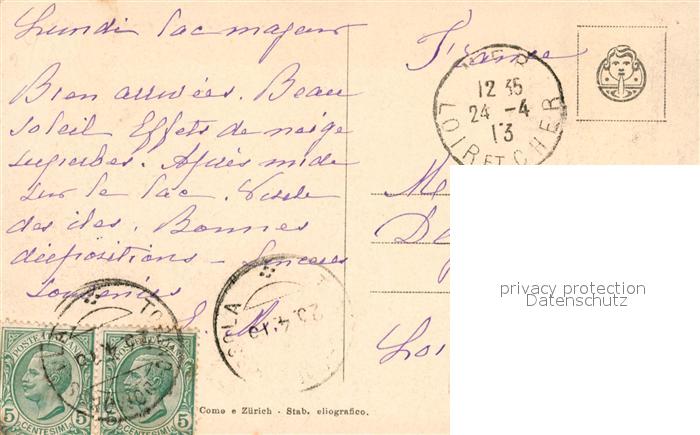 Lundi lac majeur
France
Bien arrivées. Beau
soleil Effets de neige
superbes. Après midi
sur le lac. Visite
des iles. Bonnes
dispositions - Sinceres
souvenirs
MER
12 35
24 - 4
13
LOIR ET CHER
privacy protection
Datenschutz
POSTE ITALIANE
5 CENTESIMI 5
5 CENTESIMI 5
Como e Zürich - Stab. eliografico.